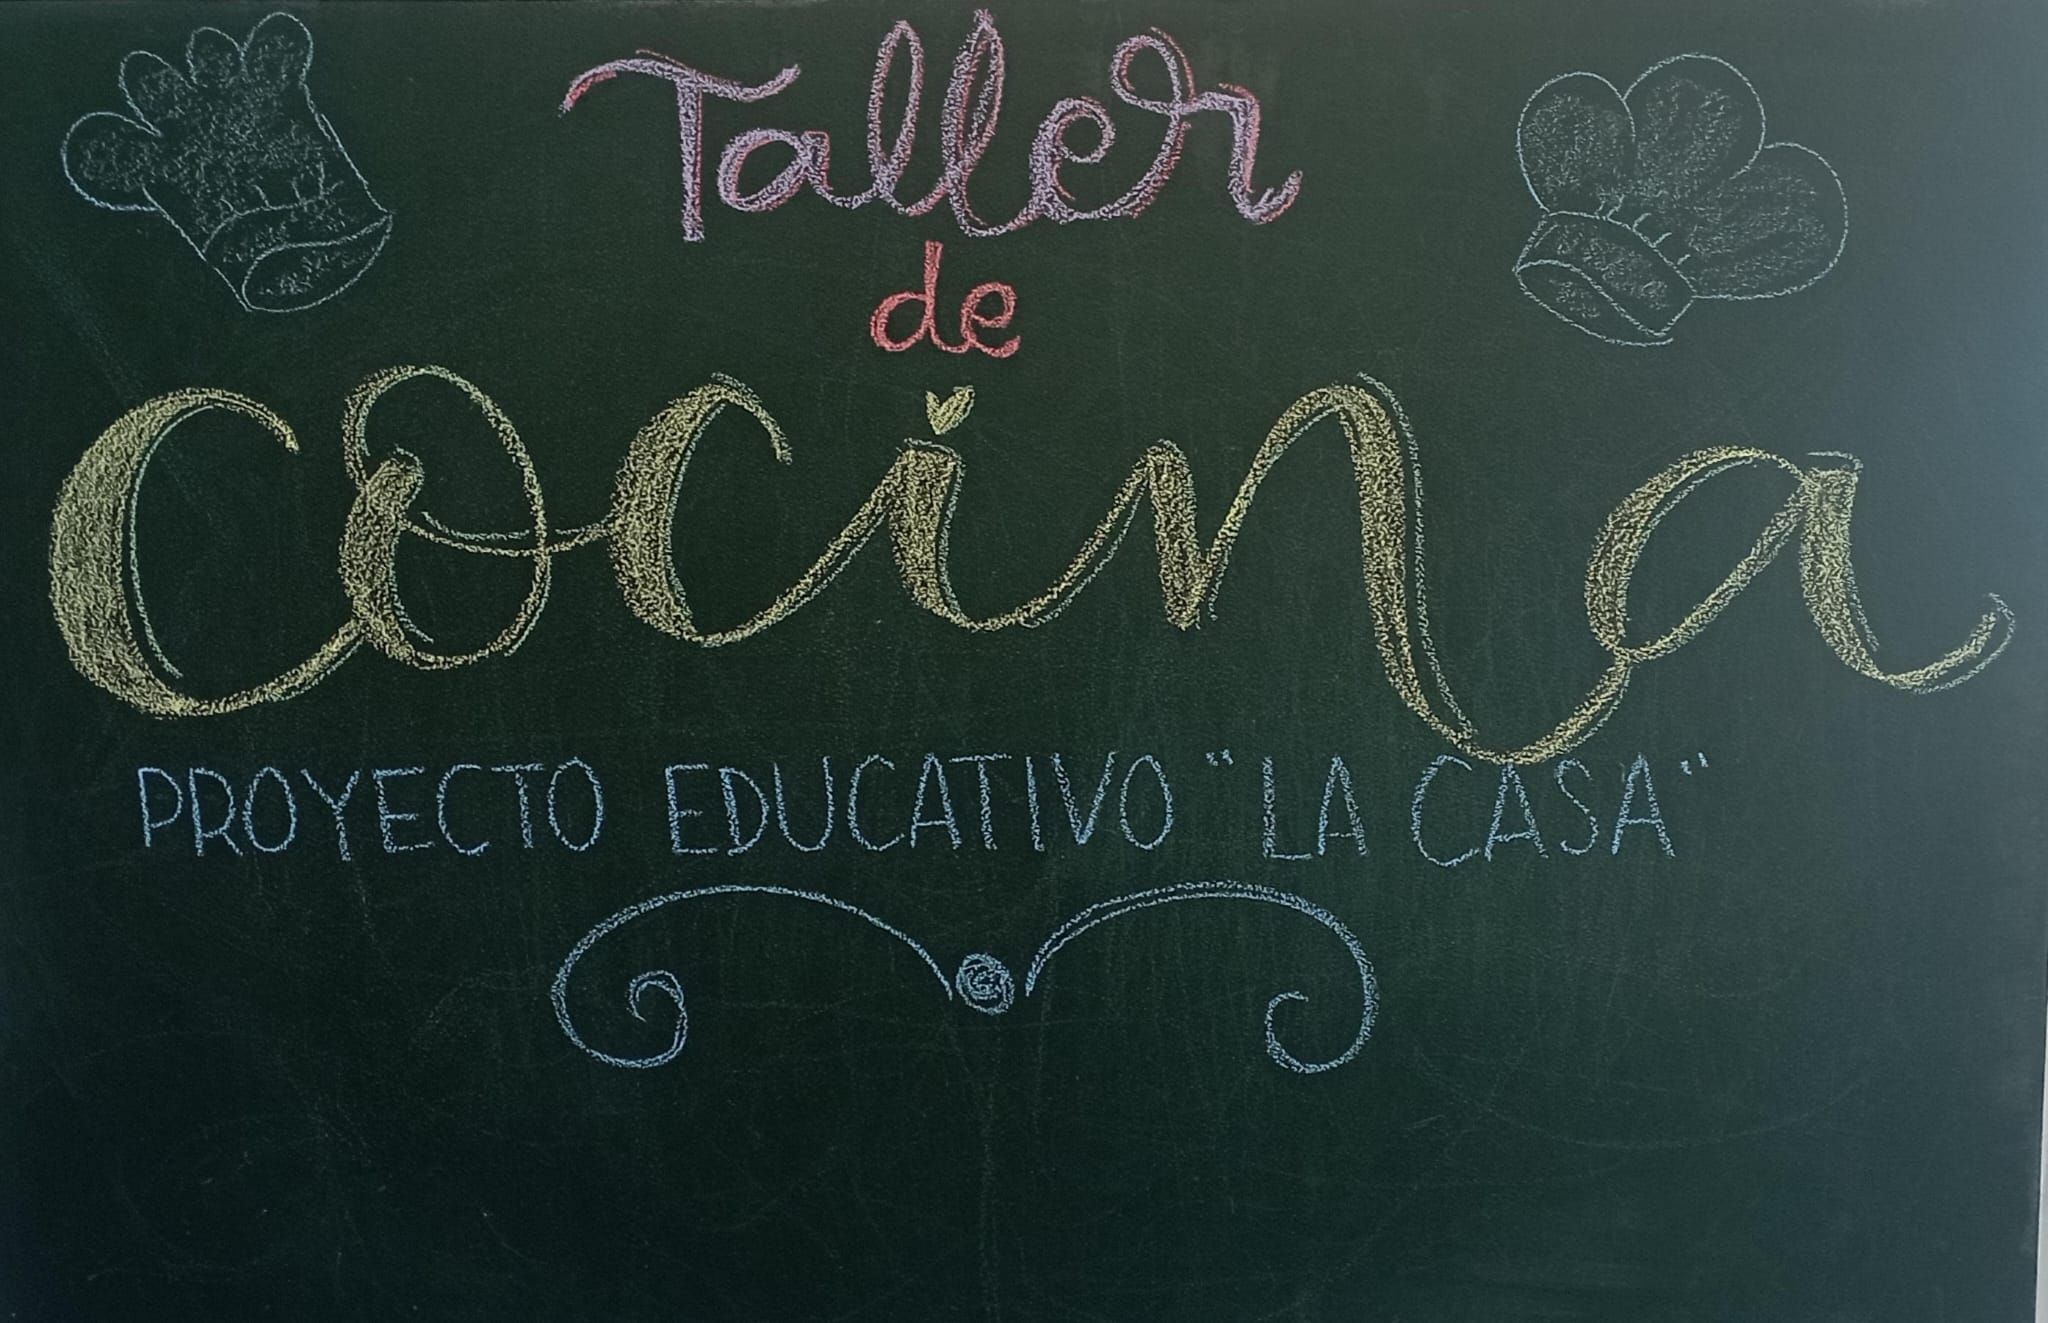 Taller
de
cocina
PROYECTO EDUCATIVO "LA CASA"